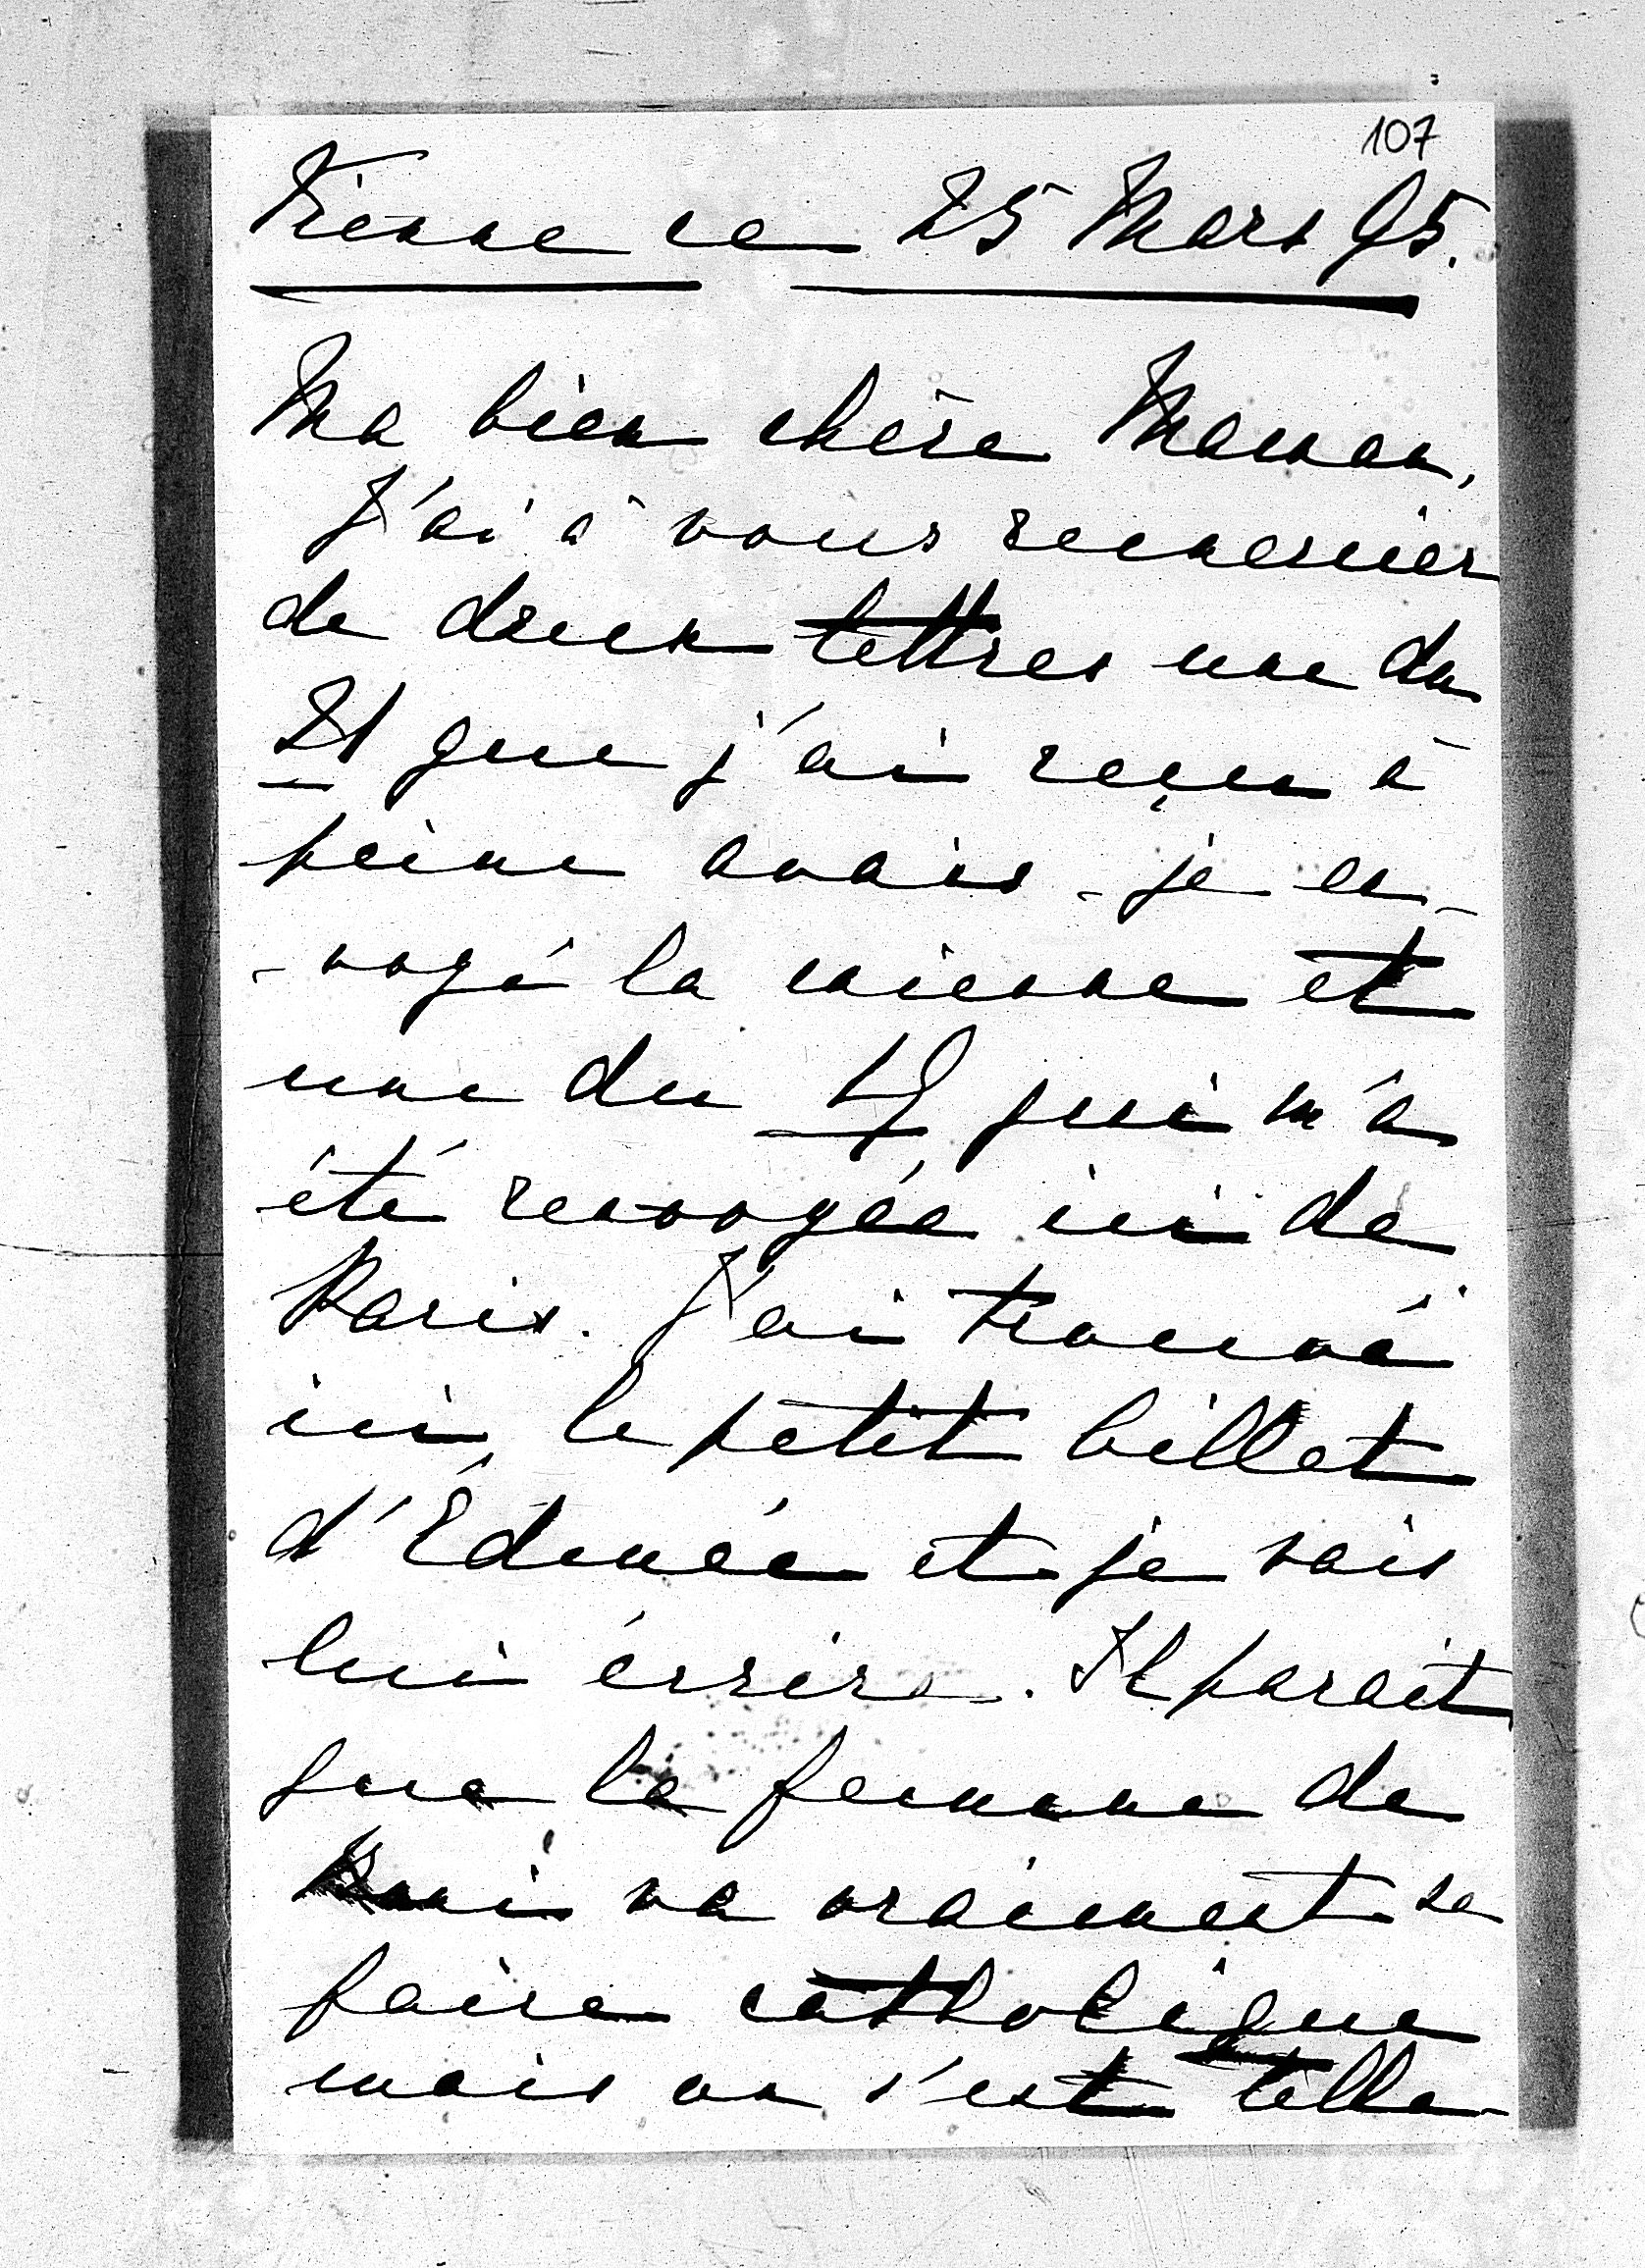 107
Vienne ce 25 Mars 95.
Ma bien chère Maman,
J'ai à vous remercier
de deux lettres une du
21 que j'ai reçu à
peine avais-je en-
-voyé la mienne et
une du 19 qui m'a
été renvoyée ici de
Paris. J'ai trouvé
ici, le petit billet
d'Edmée et je vais
lui écrire. Il parait
que la femme de
va vraiment se
faire catholique
mais on s'est telle-